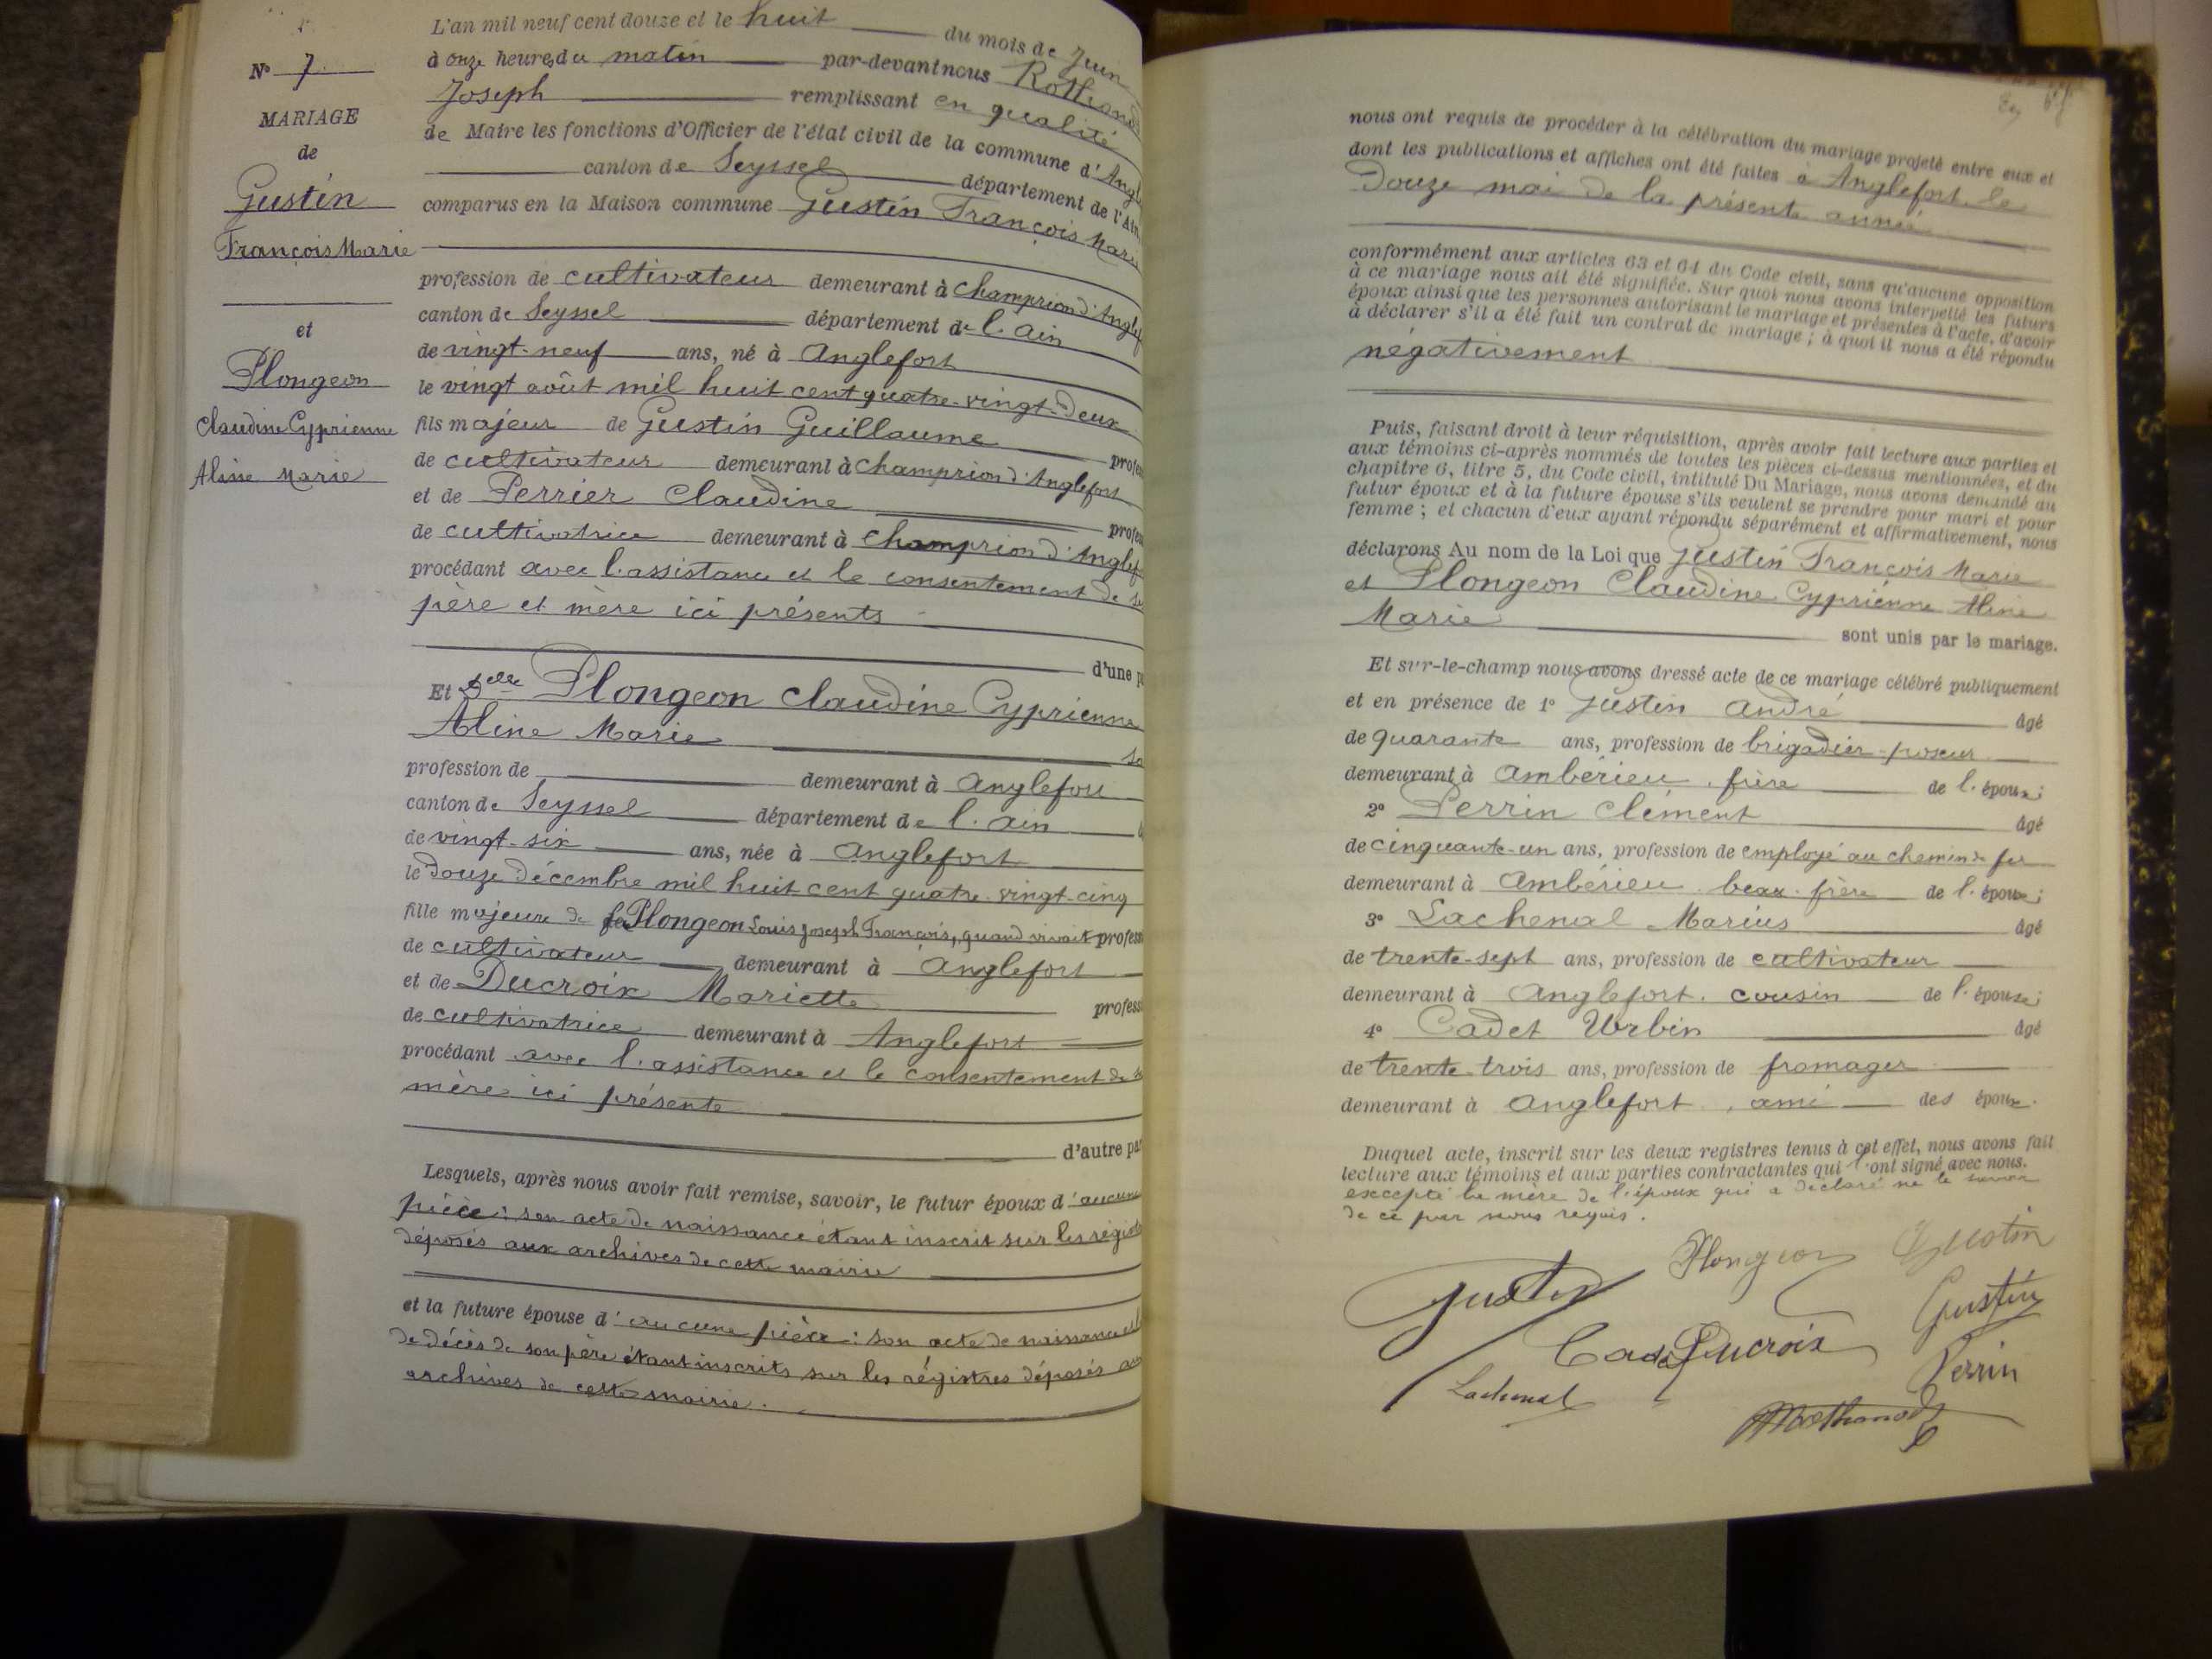 N° 7
MARIAGE
de
Gustin
François Marie
et
Plongeon
Claudine Cyprienne
Aline Marie
L'an mil neuf cent douze et le huit du mois de Juin
à onze heures du matin par-devant nous Rothonod
Joseph remplissant en qualité
de Maire les fonctions d'Officier de l'état civil de la commune d'Angl
canton de Seyssel département de l'Ain
comparus en la Maison commune Gustin François Marie
profession de cultivateur demeurant à Champrion d'Anglef
canton de Seyssel département de l'ain
de vingt-neuf ans, né à Anglefort
le vingt août mil huit cent quatre-vingt-deux
fils majeur de Gustin Guillaume profes
de cultivateur demeurant à Champrion d'Anglefort
et de Perrier Claudine profes
de cultivatrice demeurant à Champrion d'Anglef
procédant avec l'assistance et le consentement de ses
père et mère ici présents
d'une p
Et Delle Plongeon Claudine Cyprienne
Aline Marie sa
profession de demeurant à Anglefort
canton de Seyssel département de l'ain
de vingt-six ans, née à Anglefort
le douze décembre mil huit cent quatre-vingt-cinq
fille majeure de feu Plongeon Louis Joseph François, quand vivait profess
de cultivateur demeurant à Anglefort
et de Ducroix Mariette profess
de cultivatrice demeurant à Anglefort
procédant avec l'assistance et le consentement de sa
mère ici présente
d'autre par
Lesquels, après nous avoir fait remise, savoir, le futur époux d'aucune
pièce: son acte de naissance étant inscrit sur les régist
déposés aux archives de cette mairie
et la future épouse d'aucune pièce: son acte de naissance et
de décès de son père étant inscrits sur les régistres déposés aux
archives de cette mairie.
nous ont requis de procéder à la célébration du mariage projeté entre eux et
dont les publications et affiches ont été faites à Anglefort le
douze mai de la présente année
conformément aux articles 63 et 64 du Code civil, sans qu'aucune opposition
à ce mariage nous ait été signifiée. Sur quoi nous avons interpellé les futurs
époux ainsi que les personnes autorisant le mariage et présentes à l'acte, d'avoir
à déclarer s'il a été fait un contrat de mariage; à quoi il nous a été répondu
négativement
Puis, faisant droit à leur réquisition, après avoir fait lecture aux parties et
aux témoins ci-après nommés de toutes les pièces ci-dessus mentionnées, et du
chapitre 6, titre 5, du Code civil, intitulé Du Mariage, nous avons demandé au
futur époux et à la future épouse s'ils veulent se prendre pour mari et pour
femme; et chacun d'eux ayant répondu séparément et affirmativement, nous
déclarons Au nom de la Loi que Gustin François Marie
et Plongeon Claudine Cyprienne Aline
Marie sont unis par le mariage.
Et sur-le-champ nous avons dressé acte de ce mariage célébré publiquement
et en présence de 1° Gustin André âgé
de quarante ans, profession de brigadier-poseur
demeurant à Ambérieu, frère de l'époux;
2° Perrin Clément âgé
de cinquante-un ans, profession de employé au chemin de fer
demeurant à Ambérieu beau-frère de l'époux;
3° Lachenal Marius âgé
de trente-sept ans, profession de cultivateur
demeurant à Anglefort, cousin de l'épouse;
4° Cadet Urbin âgé
de trente-trois ans, profession de fromager
demeurant à Anglefort, ami des époux.
Duquel acte, inscrit sur les deux registres tenus à cet effet, nous avons fait
lecture aux témoins et aux parties contractantes qui l'ont signé avec nous.
excepté la mère de l'époux qui a déclaré ne le savoir
de ce par nous requis.
Plongeon Gustin
Gustin Gustin
Cadet Ducroix Perrin
Lachenal
Rothonod